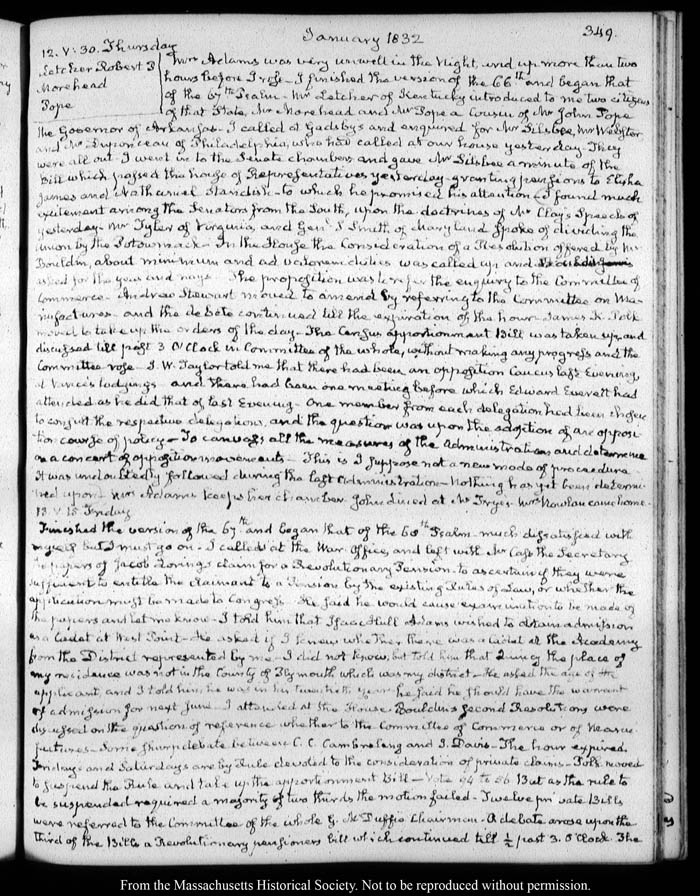 January 1832
349.
12. V: 30. Thursday
Letcher Robert P
Morehead
Pope
Mrs Adams was very unwell in the Night, and up more than two
hours before I rose - I finished the version of the 66th and began that
of the 67th Psalm - Mr Letcher of Kentucky introduced to me two citizens
of that State, Mr Morehead and Mr Pope a Cousin of Mr John Pope
the Governor of Arkansas - I called at Gadsby's and enquired for Mr Silsbee, Mr Webster
and Mr Duponceau of Philadelphia, who had called at our house yesterday - They
were all out. I went in to the Senate chamber and gave Mr Silsbee a minute of the
Bill which passed the house of Representatives yesterday - granting pensions to Elisha
James and Nathaniel Standish - to which he promised his attention - I found much
excitement among the Senators from the South, upon the doctrines of Mr Clay's Speech of
yesterday - Mr Tyler of Virginia, and Genl S. Smith of Maryland spoke of dividing the
Union by the Potowmack - In the House the Consideration of a Resolution offered by Mr
Bouldin, about minimum and ad valorem duties was called up and
asked for the yeas and nays - The proposition was to refer the enquiry to the Committee of
Commerce - Andrew Stewart moved to amend by referring to the Committee on Ma-
nufactures - and the debate continued till the expiration of the hour - James K. Polk
moved to take up the orders of the day - The Census apportionment Bill was taken up, and
discussed till past 3 O'Clock in Committee of the whole, without making any progress and the
Committee rose - J. W. Taylor told me that there had been an opposition Caucus last Evening,
at Vance's lodgings - and there had been one meeting before which Edward Everett had
attended as he did that of last Evening - One member from each delegation had been chosen
to consult the respective delegations, and the question was upon the adoption of an opposi-
tion course of policy - To canvass all the measures of the Administration and determine
on a concert of opposition movements - This is I suppose not a new mode of procedure
It was undoubtedly followed during the last Administration - Nothing has yet been determi-
ned upon - Mrs Adams keeps her chamber. John dined at Mr Frye's. Mrs Nowlan came home.
13 V: 15 Friday
Finished the version of the 67th and began that of the 68th Psalm - much dissatisfied with
myself but I must go on - I called at the War Office, and left with Mr Cass the Secretary
the papers of Jacob Loring's claim for a Revolutionary Pension - to ascertain if they were
sufficient to entitle the claimant to a Pension by the existing Rules of Law, or whether the
application must be made to Congress - He said he would cause examination to be made of
the papers and let me know - I told him that Isaac Hull Adams wished to obtain admission
as a Cadet at West Point - He asked if I knew whether there was a Cadet at the Academy
from the District represented by me - I did not know, but told him that Quincy the place of
my residence was not in the County of Plymouth which was my district - He asked the age of the
applicant, and I told him, he was in his twentieth year - he said he should have the warrant
of admission for next June - I attended at the House. Bouldin's second Resolutions were
discussed on the question of reference whether to the Committee of Commerce or of Manu-
factures - Some sharp debate between C. C. Cambreleng and J. Davis - The hour expired.
Fridays and Saturdays are by Rule devoted to the consideration of private claims - Polk moved
to suspend the Rule and take up the apportionment Bill - Vote 94 to 86 But as the rule to
be suspended required a majority of two thirds the motion failed - Twelve private Bills
were referred to the Committee of the whole G. McDuffie Chairman - A debate arose upon the
third of the Bills a Revolutionary pensioners bill which continued till ½ past 3. O'Clock. The
From the Massachusetts Historical Society. Not to be reproduced without permission.